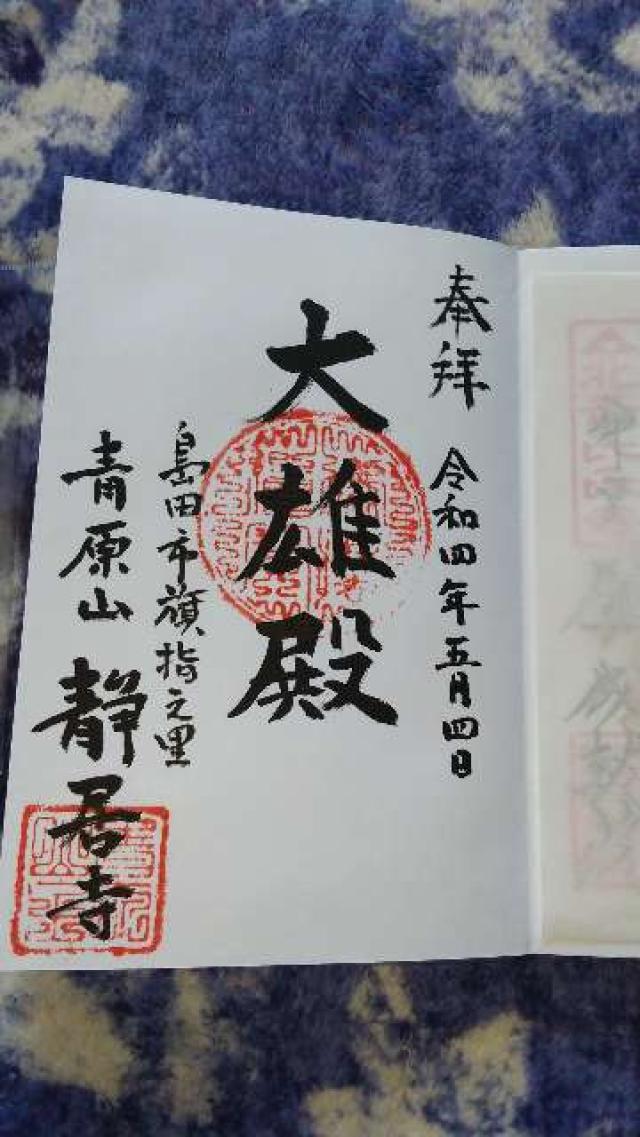 奉拝
令和四年五月四日
大雄殿
島田市旗指之里
青原山
静居寺